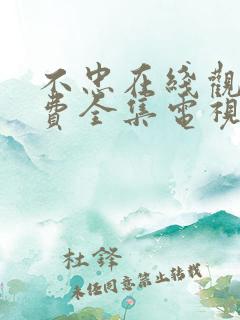 不忠在綫觀
費全集電視
杜鋒
未經同意禁止轉載